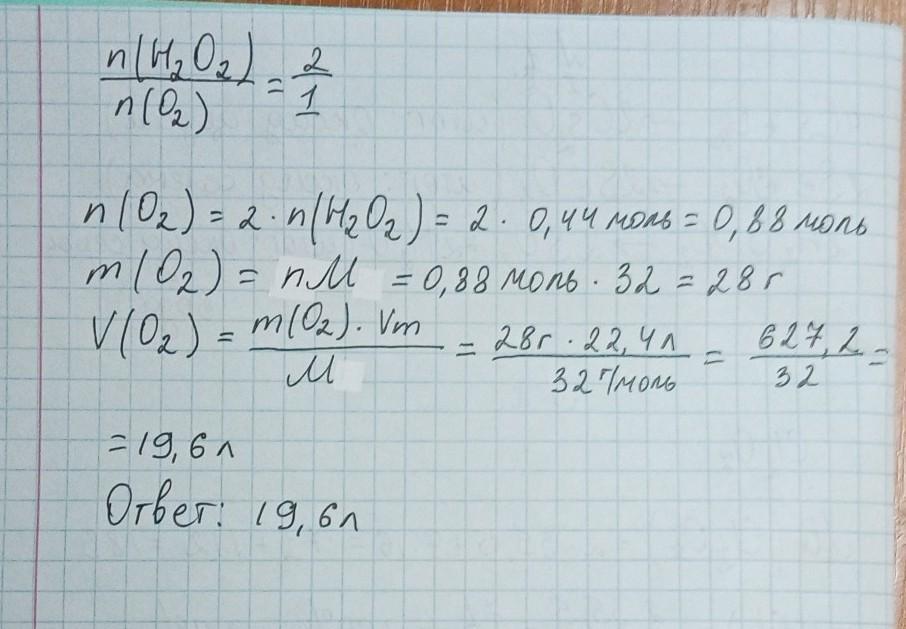 n(H₂O₂)/n(O₂) = 2/1
n(O₂) = 2 · n(H₂O₂) = 2 · 0,44 моль = 0,88 моль
m(O₂) = nM = 0,88 моль · 32 = 28 г
V(O₂) = m(O₂) · Vm / M = 28г · 22,4л / 32 г/моль = 627,2 / 32 =
= 19,6 л
Ответ: 19,6л